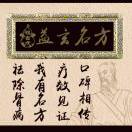 益玄名方
口碑相传
疗效见证
我有名方
祛除骨病